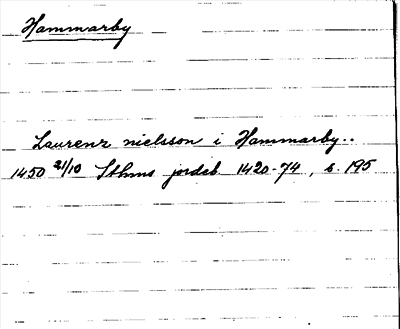 Hammarby
Laurenz nielsson i Hammarby..
1450 21/10 Sthms jordeb 1420-74, s. 195